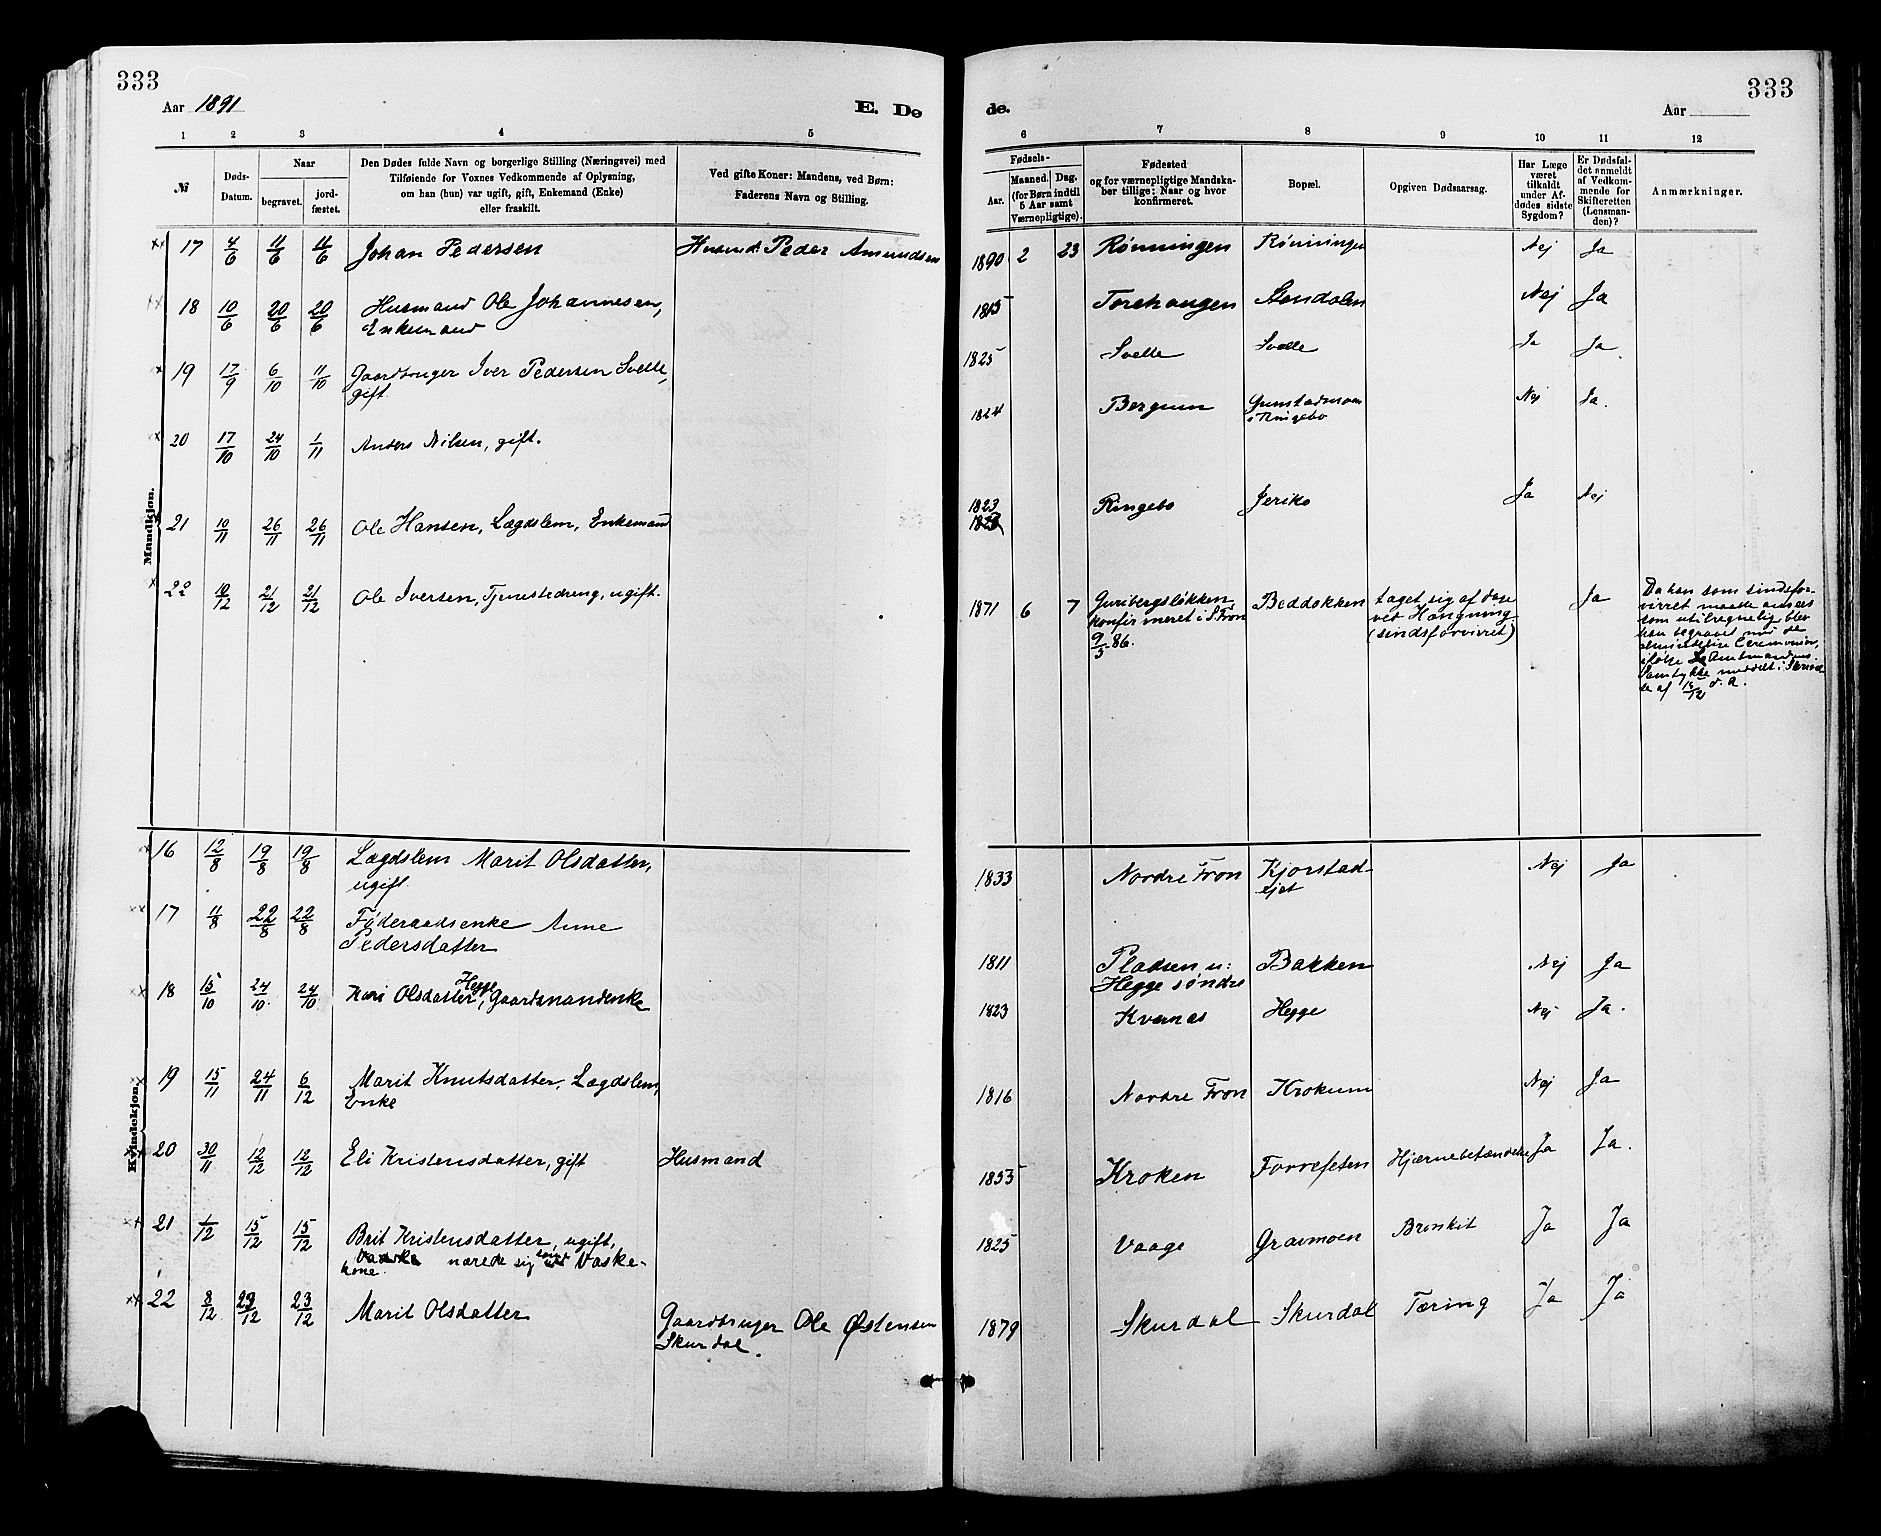 333
333
Aar 1891
E. De
de.
Aar
1 2 3 4 5 6 7 8 9 10 11 12
№
Døds-
Datum.
Naar
begravet.
jord-
fæstet.
Den Dødes fulde Navn og borgerlige Stilling (Næringsvei) med
Tilføiende for Voxnes Vedkommende af Oplysning,
om han (hun) var ugift, gift, Enkemand (Enke)
eller fraskilt.
Ved gifte Koner: Mandens, ved Børn:
Faderens Navn og Stilling.
Fødsels-
Aar.
Maaned. Dag.
(for Børn indtil
5 Aar samt
Værnepligtige).
Fødested
og for værnepligtige Mandska-
ber tillige: Naar og hvor
konfirmeret.
Bopæl.
Opgiven Dødsaarsag.
Har Læge
været
tilkaldt
under Af-
dødes sidste
Sygdom?
Er Dødsfal-
det anmeldt
af Vedkom-
mende for
Skifteretten
(Lensman-
den)?
Anmærkninger.
Mandkjøn.
17 4/6 11/6 11/6 Johan Pedersen Husmd. Peder Amundsen 1890 2 23 Rønningen Rønningen Nej Ja
18 10/6 20/6 20/6 Husmand Ole Johannesen, 1815 Torehaugen Nej Ja
Enkemand
19 17/9 6/10 11/10 Gaardbruger Iver Pedersen Svelle, 1825 Svelle Svelle Ja Ja.
gift.
20 17/10 24/10 1/11 Anders Nilsen, gift. 1824 Bergum Nej Ja.
i Ringebo
21 10/11 26/11 26/11 Ole Hansen, Lægdslem, Enkemand 1823 Ringebo Jeriko Ja Nej
22 10/12 21/12 21/12 Ole Iversen, Tjenestedreng, ugift. 1871 6 7 Guribergsløkken Beddekken Ja
konfirmeret i S Fron
9/5 86.
taget sig af dage
ved Hængning
(sindsforvirret)
Da han som sindsfor-
virret maatte anses
som utilregnelig blev
han begravet med de
almindelige Ceremonier,
ifølge Amtmandens
Samtykke meddelt i Skrivel-
se af 15/12 d. A.
Kvindekjøn.
16 12/8 19/8 19/8 Lægdslem Marit Olsdatter, 1833 Nordre Fron Kjorstad- Nej Ja
ugift. ejet
17 11/8 22/8 22/8 Føderaadsenke Anne 1811 Pladsen u: Bakken Nej Ja
Pedersdatter Hegge søndre
18 15/10 24/10 24/10 Kari Olsdatter Hegge, Gaardmandenke 1823 Kvernes Hegge Nej Ja.
19 15/11 24/11 6/12 Marit Knutsdatter, Lægdslem, 1816 Nordre Fron Krokum Nej Ja
Enke
20 30/11 12/12 12/12 Eli Kristensdatter, gift Husmand 1853 Kroken Forrefeten Hjærnebetændelse Ja Ja.
21 1/12 15/12 15/12 Brit Kristensdatter, ugift, 1825 Vaage Gravmoen Bronkit Ja Ja
nærede sig som Vaske-
kone.
22 8/12 23/12 23/12 Marit Olsdatter Gaardbruger Ole Østensen 1879 Skurdal Skurdal Tæring Ja Ja
Skurdal.